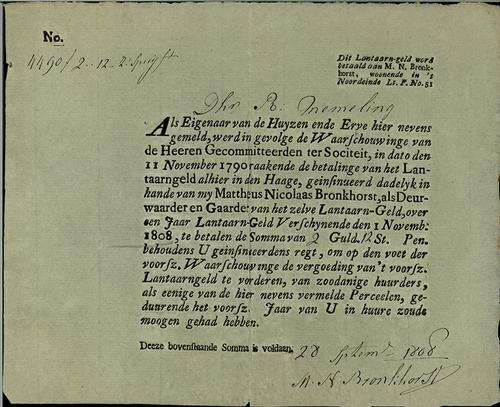 No.
4490 f 2-12-2: Spuy st
Dit Lantaarn-geld word
betaald aan M. N. Bronk-
horst, woonende in 't
Noordeinde Lr. P. No. 51
Dhr R: Nemeling
Als Eigenaar van de Huyzen ende Erve hier nevens
gemeld, werd in gevolge de Waarschouwinge van
de Heeren Gecommitteerden ter Sociteit, in dato den
11 November 1790 raakende de betalinge van het Lan-
taarngeld alhier in den Haage, geinsinueerd dadelyk in
hande van my Mattheus Nicolaas Bronkhorst, als Deur-
waarder en Gaarder van het zelve Lantaarn-Geld, over
een Jaar Lantaarn-Geld Verschynende den 1 Novemb:
1808, te betalen de Somma van 2 Guld. 12 St. Pen.
behoudens U geinsinueerdens regt, om op den voet der
voorsz. Waarschouwinge de vergoeding van't voorsz.
Lantaarngeld te vorderen, van zoodanige huurders,
als eenige van de hier nevens vermelde Perceelen, ge-
duurende het voorsz. Jaar van U in huure zoude
moogen gehad hebben.
Deeze bovenstaande Somma is voldaan, 28 Septemr 1808
M. N Bronkhorst